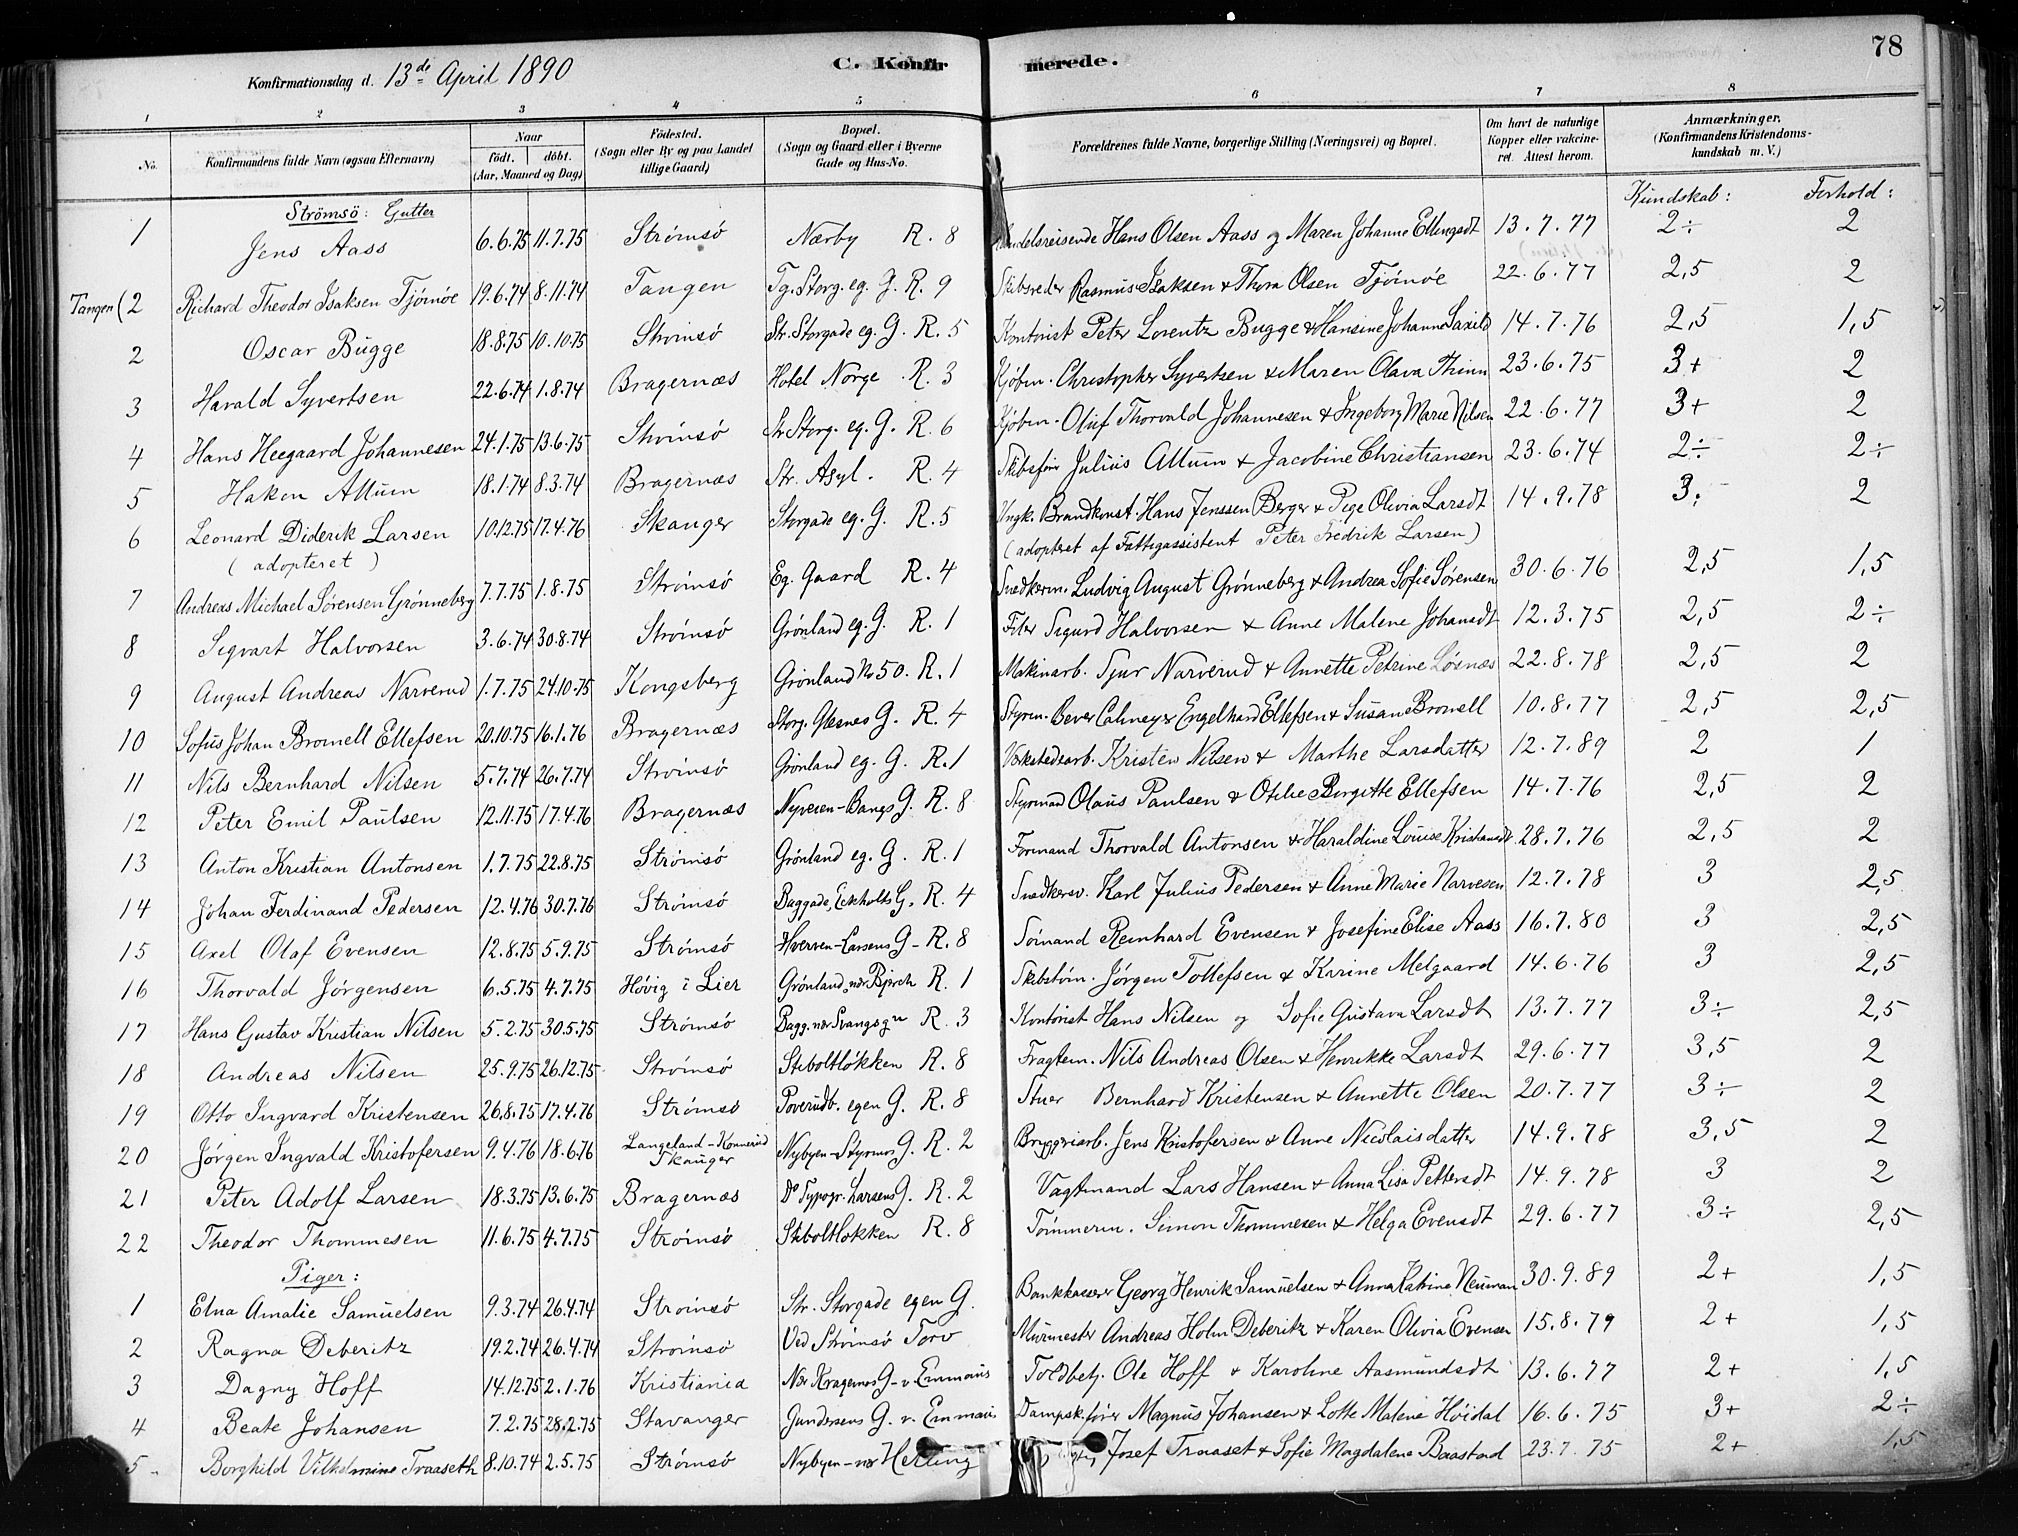 78
Konfirmationsdag d. 13de April 1890 C. Konfirmerede.
1 2 3 4 5 6 7 8
No. Konfirmandens fulde Navn (ogsaa Efternavn) Naar født. døbt. (Aar, Maaned og Dag) Fødested. (Sogn eller By og paa Landet tillige Gaard) Bopæl. (Sogn og Gaard eller i Byerne Gade og Hus-No. Forældrenes fulde Navne, borgerlige Stilling (Næringsvei) og Bopæl. Om havt de naturlige Kopper eller vakcineret. Attest herom. Anmærkninger. (Konfirmandens Kristendomskundskab m. V.)
Strömsö: Gutter Kundskab: Forhold:
1 Jens Aass 6.6.75 11.7.75 Strømsø Nærby R. 8 Handelsreisende Hans Olsen Aass og Maren Johanne Ellingsdt 13.7.77 2÷ 2
Tangen (2 Richard Theodor Isaksen Tjømøe 19.6.74 8.11.74 Tangen Tg. Storg. eg. G. R. 9 Skibsreder Rasmus Isaksen & Thora Olsen Tjømøe 22.6.77 2,5 2
2 Oscar Bugge 18.8.75 10.10.75 Strømsø Str. Storgade eg. G. R. 5 Kontorist Peter Lorentz Bugge & Hansine Johanne Saxild 14.7.76 2,5 1,5
3 Harald Syvertsen 22.6.74 1.8.74 Bragernæs Hotel Norge R. 3 Kjøbm. Christopher Syvertsen & Maren Olava Thinn 23.6.75 3+ 2
4 Hans Heegaard Johannesen 24.1.75 13.6.75 Strømsø Str Storg. eg. G. R. 6 Kjøbm. Oluf Thorvald Johannesen & Ingeborg Marie Nilsen 22.6.77 3+ 2
5 Hakon Allum 18.1.74 8.3.74 Bragernæs Str. Asyl. R. 4 Skibsfører Julius Allum & Jacobine Christiansen 23.6.74 2÷ 2÷
6 Leonard Diderik Larsen 10.12.75 17.4.76 Skauger Storgade eg. G. R. 5 Ungk. Brandkonst. Hans Jenssen Berger & Pige Olivia Larsdt 14.9.78 3. 2
(adopteret) (adopteret af Fattigassistent Peter Fredrik Larsen)
7 Andreas Michael Sørensen Grønneberg 7.7.75 1.8.75 Strømsø Eg. Gaard R. 4 Snedkerm. Ludvig August Grønneberg & Andrea Sofie Sørensen 30.6.76 2,5 1,5
8 Sigvart Halvorsen 3.6.74 30.8.74 Strømsø Grønland eg. G. R. 1 Filer Sigurd Halvorsen & Anne Malene Johansdt 12.3.75 2,5 2÷
9 August Andreas Narverud 1.7.75 24.10.75 Kongsberg Grønland No 50. R. 1 Maskinarb. Sjur Narverud & Annette Petrine Løsnæs 22.8.78 2,5 2
10 Sofus Johan Bromell Ellefsen 20.10.75 16.1.76 Bragernæs Storg. Glesnes G. R. 4 Styrm. Bever Calmeyer Engelhard Ellefsen & Susan Bromell 10.8.77 2,5 2,5
11 Nils Bernhard Nilsen 5.7.74 26.7.74 Strømsø Grønland eg. G. R. 1 Verkstedsarb. Kristen Nilsen & Marthe Larsdatter 12.7.89 2 1
12 Peter Emil Paulsen 12.11.75 17.4.76 Bragernæs Nyveien-Bangs G. R. 8 Styrmand Olaus Paulsen & Otilie Birgitte Ellefsen 14.7.76 2,5 2
13 Anton Kristian Antonsen 1.7.75 22.8.75 Strømsø Grønland eg. G. R. 1 Formand Thorvald Antonsen & Haraldine Louise Kristiansdt 28.7.76 2,5 2
14 Johan Ferdinand Pedersen 12.4.76 30.7.76 Strømsø Baggade, Eckholts G. R. 4 Snedkersv. Karl Julius Pedersen & Anne Marie Narvesen 12.7.78 3 2,5
15 Axel Olaf Evensen 12.8.75 5.9.75 Strømsø Hverven-Larsens G- R. 8 Sømand Reinhard Evensen & Josefine Elise Aass 16.7.80 3 2,5
16 Thorvald Jørgensen 6.5.75 4.7.75 Høvig i Lier Grønland, nær Bjerch R. 1 Skibstøm. Jørgen Tollefsen & Karine Melgaard 14.6.76 3 2,5
17 Hans Gustav Kristian Nilsen 5.2.75 30.5.75 Strømsø Bagg. nær Svangsgn R. 3 Kontorist Hans Nilsen og Sofie Gustava Larsdt 13.7.77 3÷ 2,5
18 Andreas Nilsen 25.9.75 26.12.75 Strømsø Stiboltløkken R. 8 Fragtem. Nils Andreas Olsen & Henrikke Larsdt 29.6.77 3,5 2
19 Otto Ingvard Kristensen 26.8.75 17.4.76 Strømsø Poverudb. egen G. R. 8 Stuer Bernhard Kristensen & Annette Olsen 20.7.77 3÷ 2
20 Jørgen Ingvald Kristofersen 9.4.76 18.6.76 Langeland-Konnerud Skauger Nybyen-Styrmos G. R. 2 Bryggeriarb. Jens Kristofersen & Anne Nicolaisdatter 14.9.78 3,5 2
21 Peter Adolf Larsen 18.3.75 13.6.75 Bragernæs Do Typogr. Larsens G. R. 2 Vagtmand Lars Hansen & Anna Lisa Pettersdt 14.9.78 3 2
22 Theodor Thommesen 11.6.75 4.7.75 Strømsø Stiboltløkken R. 8 Tømmerm. Simon Thommesen & Helga Evensdt 29.6.77 3÷ 2,5
Piger:
1 Elna Amalie Samuelsen 9.3.74 26.4.74 Strømsø Str. Storgade egen G. Bankkasserer Georg Henrik Samuelsen & Anna Katrine Neuman 30.9.89 2+ 1,5
2 Ragna Deberitz 19.2.74 26.4.74 Strømsø Ved Strømsø Torv Murmester Andreas Holm Deberitz & Karen Olivia Evensen 15.8.79 2+ 1,5
3 Dagny Hoff 14.12.75 2.1.76 Kristiania Nær Kragernos G-v. Emmaus Toldbetj. Ole Hoff & Karoline Aasmundsdt 13.6.77 2+ 1,5
4 Beate Johansen 7.2.75 28.2.75 Stavanger Gundersens G. v. Emmaus Dampsk.fører Magnus Johansen & Lotte Malene Høidal 16.6.75 3+ 2÷
5 Borghild Vilhelmine Traaseth 8.10.74 2.5.75 Strømsø Nybyen-nær Herling Josef Traaset & Sofie Magdalene Baastad 23.7.75 2+ 1,5